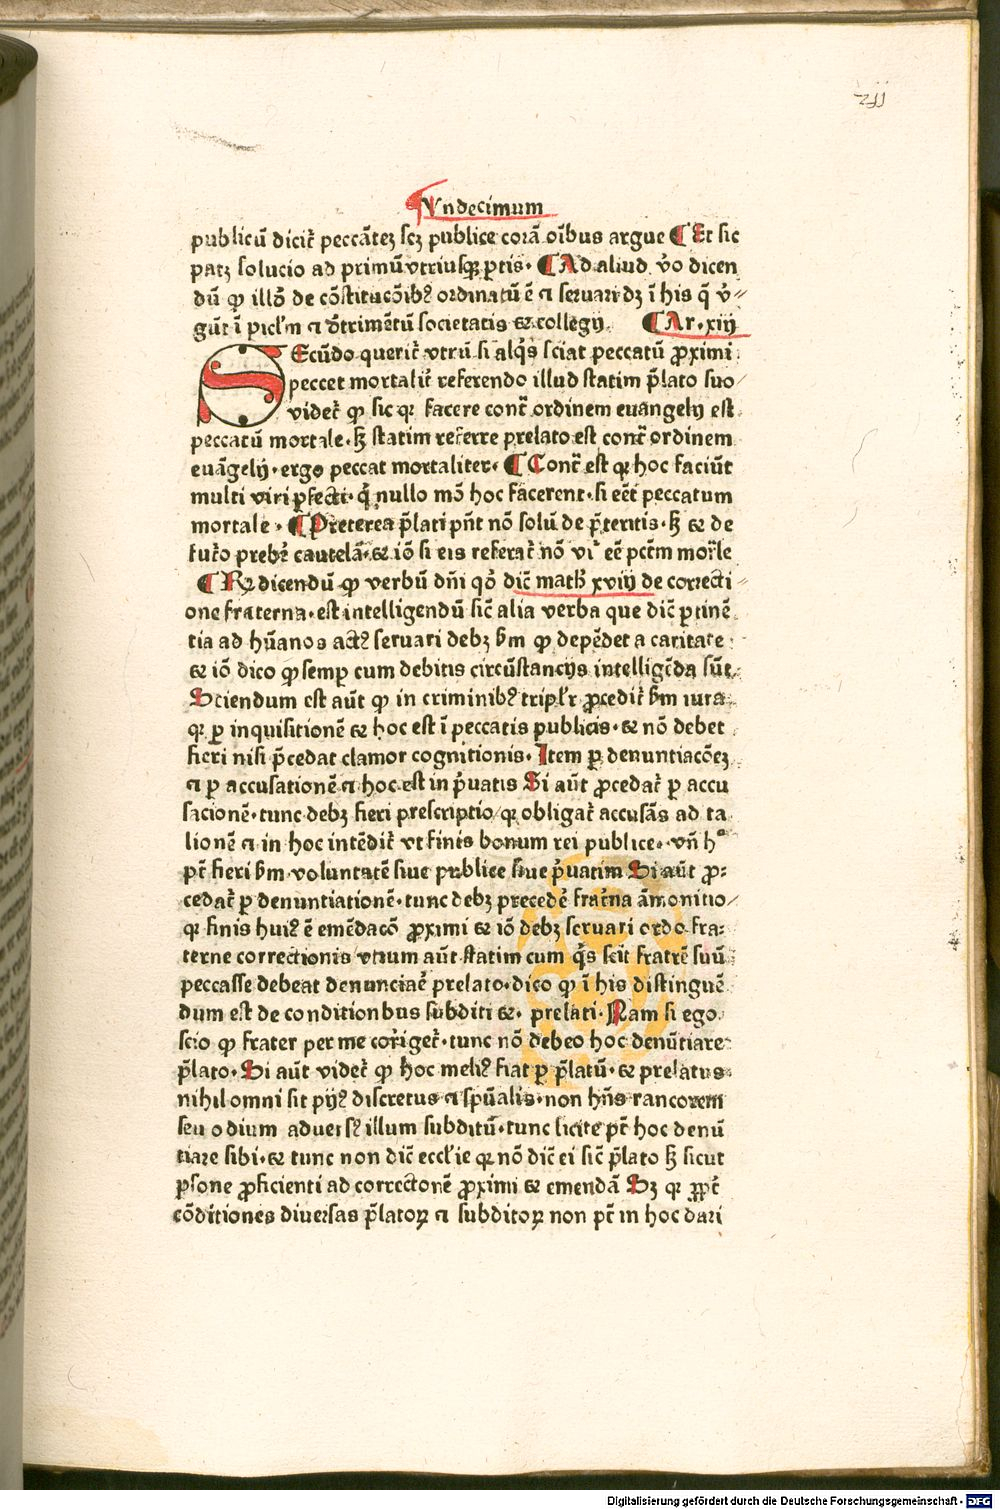 Vndecimum
publicũ dicit̃ peccãteʒ scʒ publice corã oĩbus argue ¶ Et sic
patʒ solucio ad primũ vtriusqʒ ꝑtis· ¶ Ad aliud v̾o dicen
dũ ꝙ illõ de cõstitucõib⁹ ordinatũ ẽ ⁊ seruari dʒ ĩ his q̃ v̾⸗
gũt ĩ picl'm ⁊ dt̾rimẽtũ societatis ⁊ collegij ¶ Ar·xiij
SEcũdo querit̃ vtrũ si alq̇s sciat peccatũ ꝓximi
peccet mortalit̃ referendo illud statim p̃lato suo/
videt̃ ꝙ sic qꝛ facere cont̃ ordinem euangelij est
peccatũ mortale· sʒ statim referre prelato est cont̃ ordinem
euãgelij· ergo peccat mortaliter· ¶ Cont̃ est qꝛ hoc faciũt
multi viri ꝑfecti· q̇ nullo mõ hoc facerent· si eẽt peccatum
mortale · ¶ Preterea p̃lati pñt nõ solũ de p̃teritis· sʒ ⁊ de
fut̃o preber̃ cautelã· ⁊ iõ si eis referat̃ nõ vr̃ eẽ pctm̃ mort̃le
¶ Rʒ dicendũ ꝙ verbũ dñi qḋ dic̃ math̃ xviij de correcti⸗
one fraterna· est intelligendũ sic̃ alia verba que dic̃ ꝑtinẽ
tia ad hũanos act⁹ seruari debʒ ẜm ꝙ depẽdet a caritate
⁊ iõ dico ꝙ semꝑ cum debitis circũstancijs intelligẽda sũt
Sciendum est aũt ꝙ in criminib⁹ tripl'r ꝓcedit̃ ẜm iura
qꝛ ꝑ inquisitionẽ ⁊ hoc est ĩ peccatis publicis· ⁊ nõ debet
fieri nisi p̃cedat clamor cognitionis· Item ꝑ denuntiacõeʒ
⁊ ꝑ accusationẽ ⁊ hoc est in p̃uatis Si aũt ꝓcedat̃ ꝑ accu
sacionẽ· tunc debʒ fieri prescriptio/ qꝛ obligat̃ accusãs ad ta
lionẽ ⁊ in hoc intẽdit̃ vt finis bonum rei publice· vñ hᵃ
pt̃ fieri ẜm voluntatẽ siue publice siue p̃uatim Si aũt ꝓ⸗
cedat̃ ꝑ denuntiationẽ· tunc debʒ preceder̃ frat̃na ãmonitio/
qꝛ finis hui⁹ ẽ emẽdacõ ꝓximi ⁊ iõ debʒ seruari ordo fra⸗
terne correctionis vtrum aũt statim cum q̇s scit fratrẽ suũ
peccasse debeat denunciar̃ prelato· dico ꝙ ĩ his distinguẽ
dum est de conditionbus subditi ⁊ prelati· Nam si ego
scio ꝙ frater per me cor̃iget̃· tunc nõ debeo hoc denũtiare
p̃lato· Si aũt videt̃ ꝙ hoc meli⁹ fiat ꝑ p̃latũ· ⁊ prelatus
nihil omni sit pij⁹ discretus ⁊ spũalis· non hñs rancorem
seu odium aduers⁹ illum subditũ· tunc licite pt̃ hoc denũ
tiare sibi· ⁊ tunc non dic̃ eccl'ie qꝛ nõ dic̃ ei sic̃ p̃lato sʒ sicut
ꝑsone ꝓficienti ad correctonẽ ꝓximi ⁊ emendã Sʒ qꝛ ꝓpt̃
cõdit̃iones diuersas p̃latoꝝ ⁊ subditoꝝ non pt̃ in hoc dari
Digitalisierung gefördert durch die Deutsche Forschungsgemeinschaft - DFG